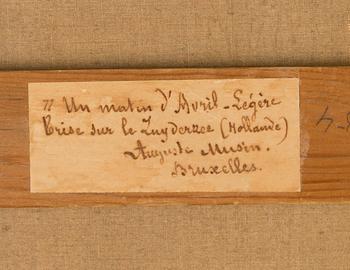 " Un matin d'Avril - Légère
Brise sur le Zuyderzee (Hollande)
Auguste Musin.
Bruxelles.